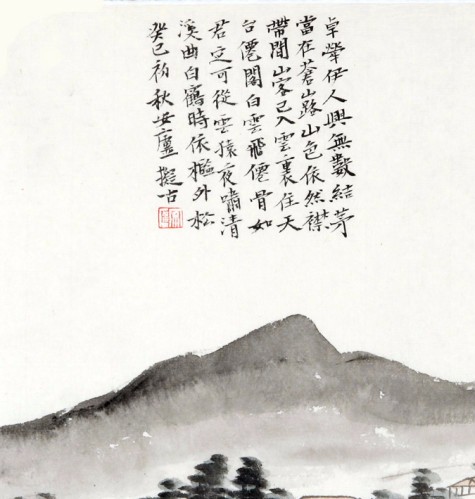 卓犖伊人興無數結茅
當在蒼山路山色依然襟
帶間山容已入雲裏住天
台僊閣白雲飛僊骨如
君定可從雲猿夜嘯清
溪曲白鶴時依檻外松
癸巳初秋安廬擬古